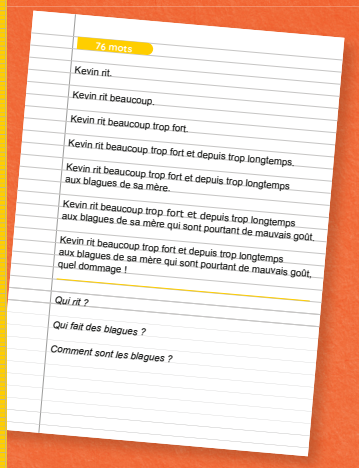 76 mots
Kevin rit.
Kevin rit beaucoup.
Kevin rit beaucoup trop fort.
Kevin rit beaucoup trop fort et depuis trop longtemps.
Kevin rit beaucoup trop fort et depuis trop longtemps
aux blagues de sa mère.
Kevin rit beaucoup trop fort et depuis trop longtemps
aux blagues de sa mère qui sont pourtant de mauvais goût.
Kevin rit beaucoup trop fort et depuis trop longtemps
aux blagues de sa mère qui sont pourtant de mauvais goût,
quel dommage !
Qui rit ?
Qui fait des blagues ?
Comment sont les blagues ?